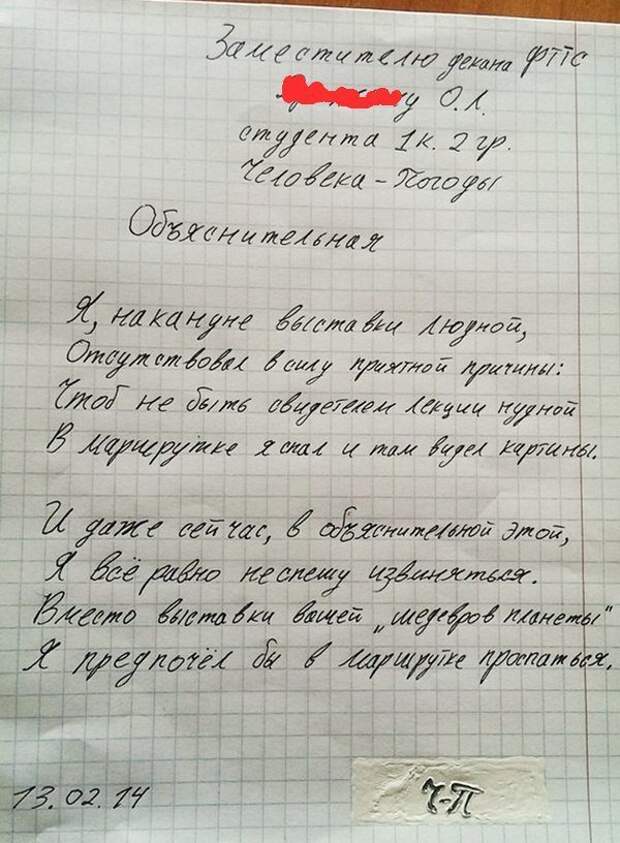 Заместителю декана ФТПС
у О.Л.
студента 1к. 2 гр.
Человека-Погоды
Объяснительная
Я, накануне выставки людной,
Отсутствовал в силу приятной причины:
Чтоб не быть свидетелем лекции нудной
В маршрутке я спал и там видел картины.
И даже сейчас, в объяснительной этой,
Я всё равно не спешу извиняться.
Вместо выставки вашей „шедевров планеты"
Я предпочёл бы в маршрутке проспаться.
13.02.14
Ч-П